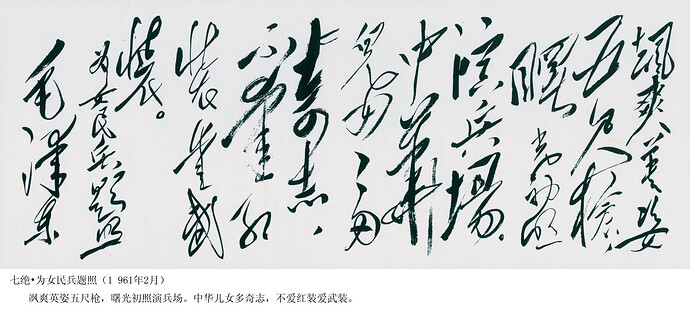 飒爽英姿
五尺枪,
曙光初照
演兵场。
中华
儿女多
奇志,
不爱红
装爱武
装。
为女民兵题照
毛泽东
七绝•为女民兵题照（1 961年2月）
飒爽英姿五尺枪，曙光初照演兵场。中华儿女多奇志，不爱红装爱武装。